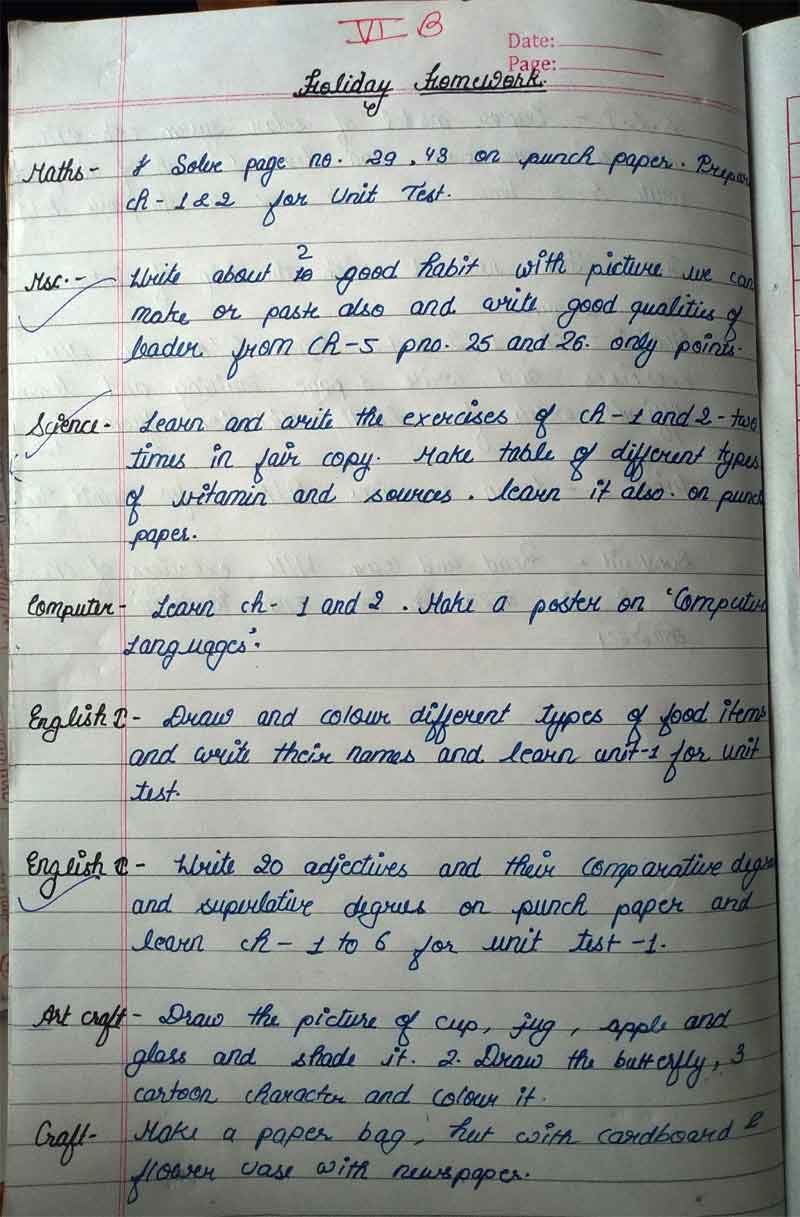 VI B
Date:
Page:
Holiday Homework.
Maths - 1 Solve page no. 29, 43 on punch paper. Prepare
ch - 1 & 2 for Unit Test.
Msc. - Write about 2 good habit with picture we can
make or paste also and write good qualities of
leader from Ch-5 pno. 25 and 26. only points.
Science - Learn and write the exercises of ch-1 and 2 - two
times in fair copy. Make table of different types
of vitamin and sources. learn it also. on punch
paper.
Computer - Learn ch- 1 and 2. Make a poster on 'Computer
Languages'.
English I - Draw and colour different types of food items
and write their names and learn unit-1 for unit
test.
English II - Write 20 adjectives and their comparative degree
and superlative degrees on punch paper and
learn ch- 1 to 6 for unit test -1.
Art craft - Draw the picture of cup, jug, apple and
glass and shade it. 2. Draw the butterfly, 3
cartoon character and colour it.
Craft - Make a paper bag, hut with cardboard &
flower vase with newspaper.